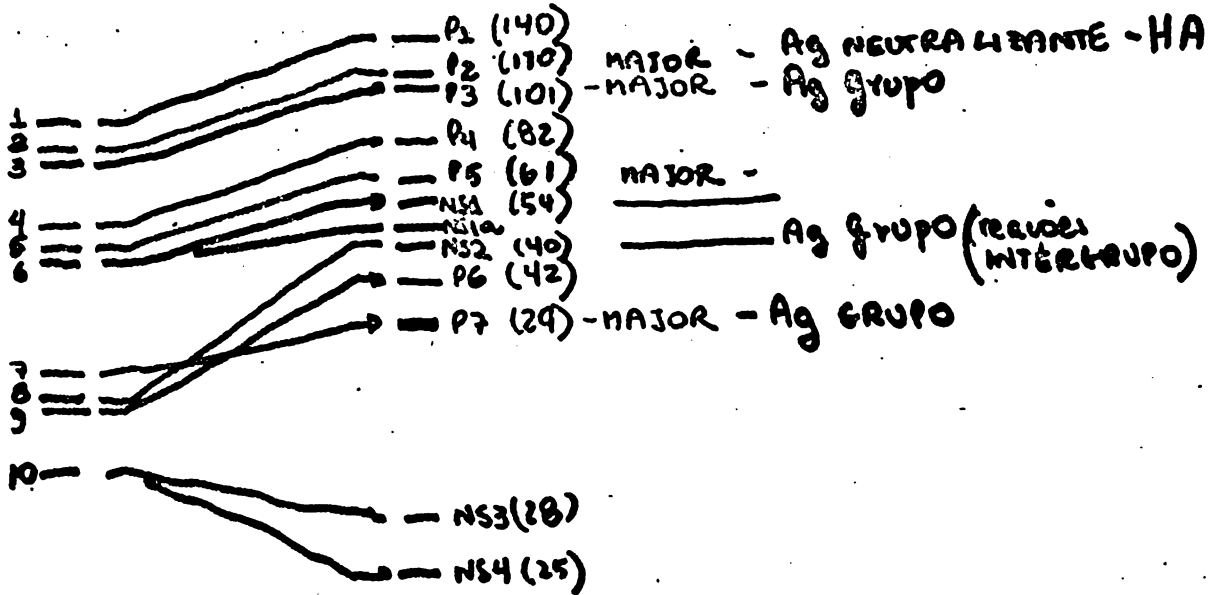 P1 (140)
P2 (110) MAJOR - Ag NEUTRALIZANTE - HA
P3 (101) - MAJOR - Ag grupo
1
2
3
P4 (82)
P5 (61) MAJOR -
NS1 (54)
NS1a
NS2 (40) Ag grupo (reações INTERGRUPO)
P6 (42)
P7 (29) - MAJOR - Ag GRUPO
4
5
6
7
8
9
10
NS3 (28)
NS4 (25)